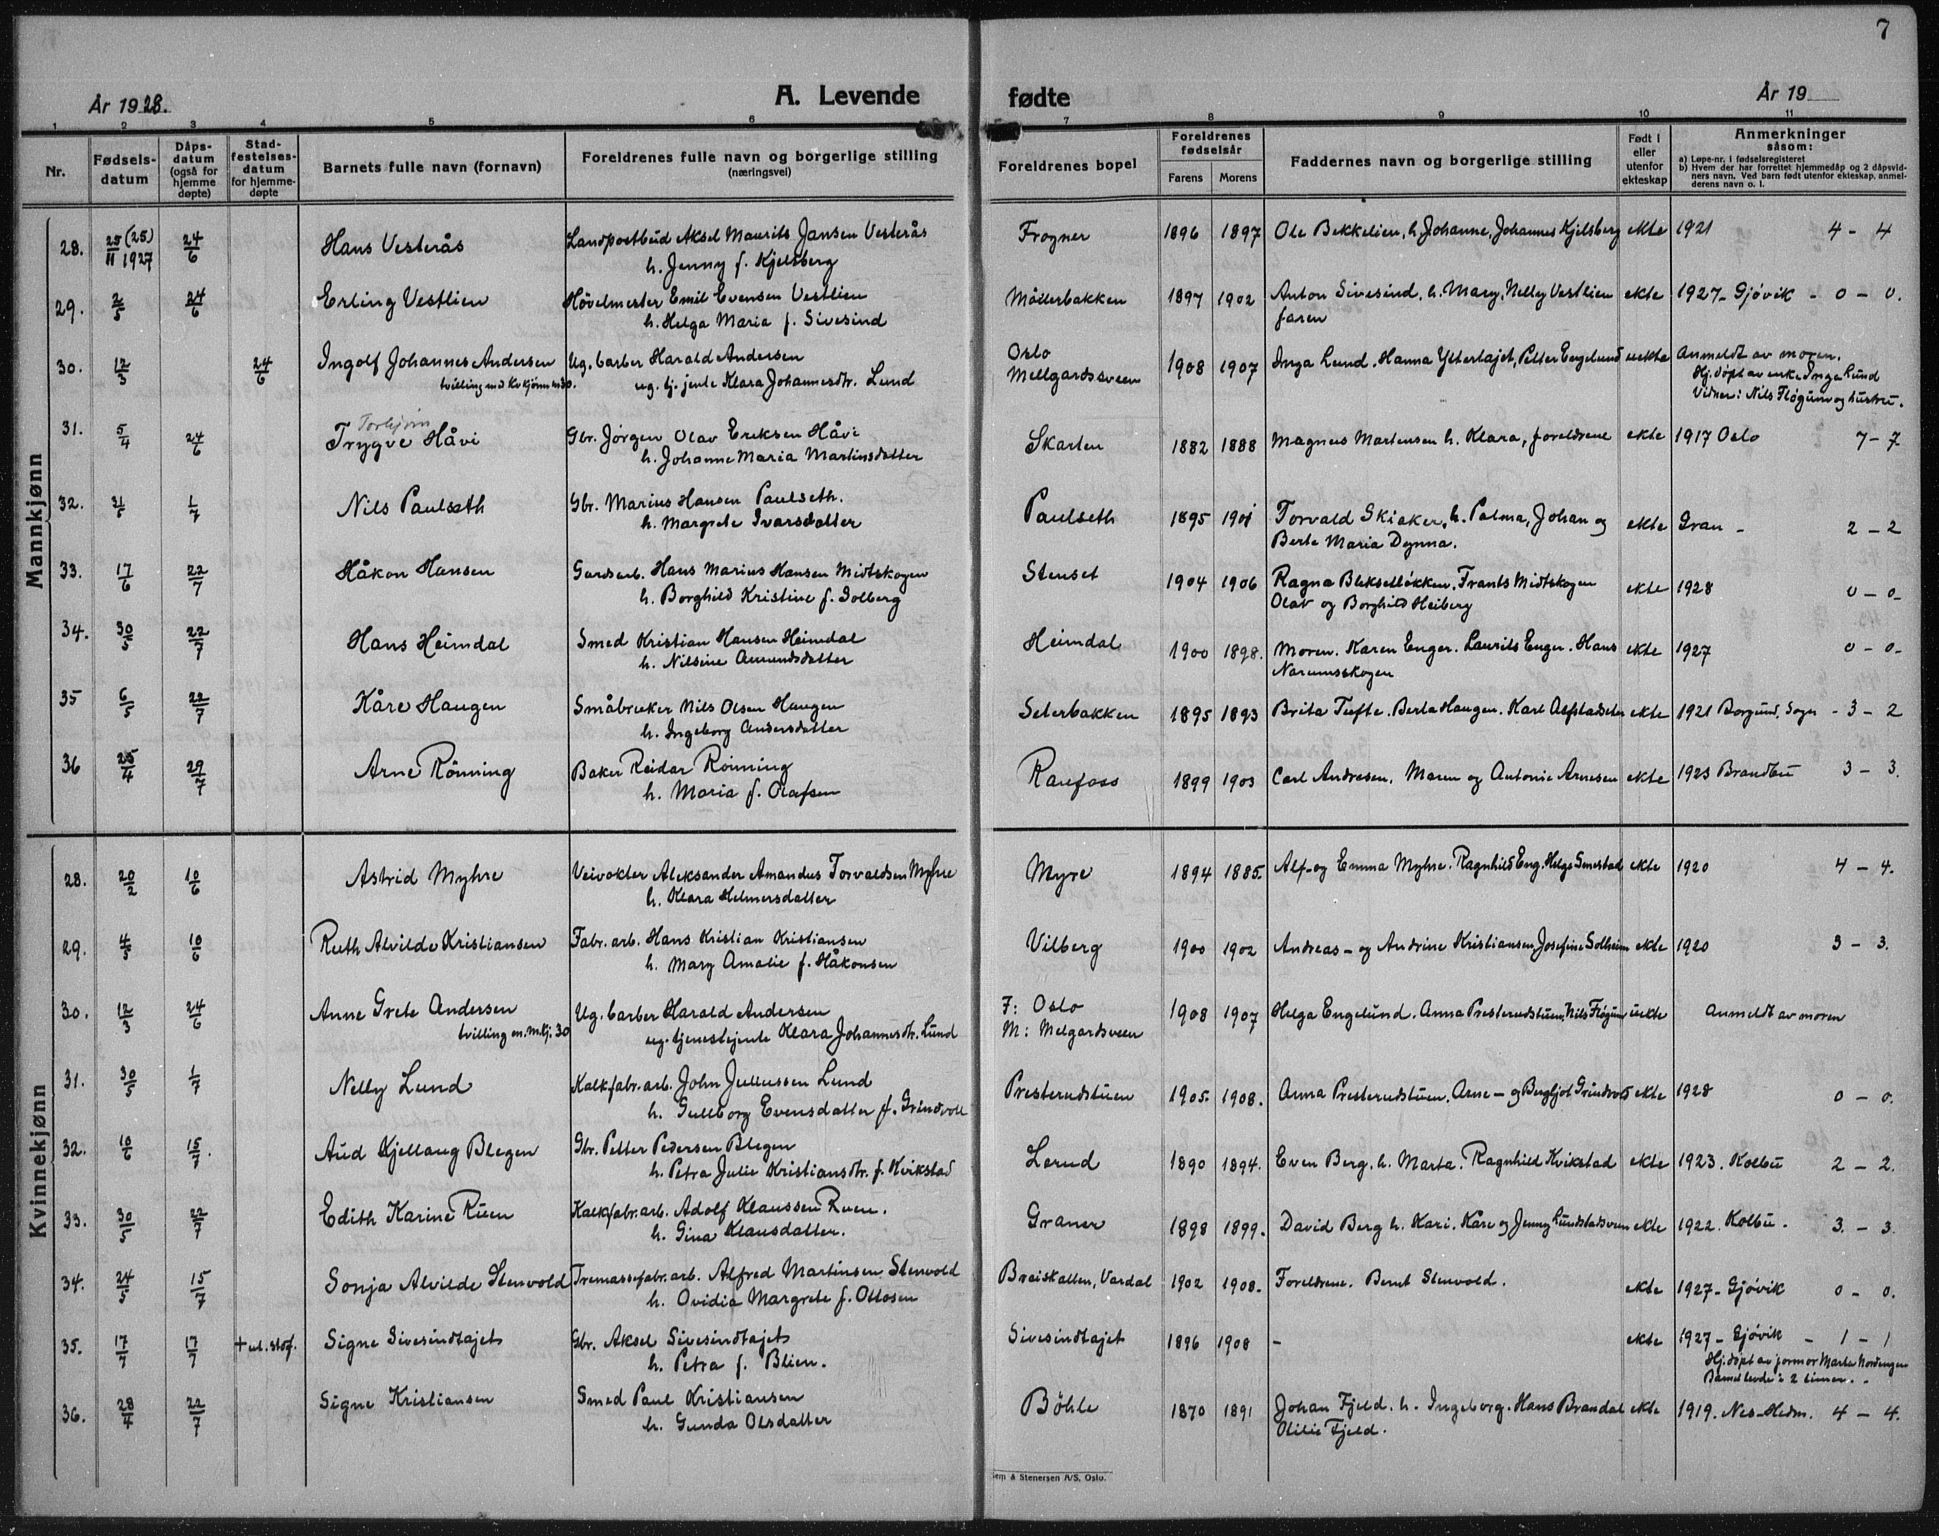 7
År 1928.
A. Levende fødte
År 19
1 2 3 4 5 6 7 8 9 10 11
Nr.
Fødsels-datum
Dåps-datum (også for hjemme døpte)
Stad-festelses-datum for hjemme-døpte
Barnets fulle navn (fornavn)
Foreldrenes fulle navn og borgerlige stilling (næringsvei)
Foreldrenes bopel
Foreldrenes fødselsår
Farens Morens
Faddernes navn og borgerlige stilling
Født i eller utenfor ekteskap
Anmerkninger såsom:
a) Løpe-nr. i fødselsregisteret
b) Hvem der har forrettet hjemmedåp og 2 dåpsvidners navn. Ved barn født utenfor ekteskap, anmelderens navn o. l.
Mannkjønn
28. 25/11 (25) 1927 24/6 Hans Vesterås Landpostbud Aksel Maurits Jansen Vesterås Frogner 1896 1897 Ole Bekkelien, h. Johanne, Johannes Kjelsberg ekte 1921 4 - 4
h. Jenny f. Kjelsberg
29. 2/5 24/6 Erling Vestlien Høvelmester Emil Evensen Vestlien Möllerbakken 1897 1902 Anton Sivesind, h. Mary, Nelly Vestlien ekte 1927 - Gjövik - 0 - 0.
h. Helga Maria f. Sivesind faren
30. 12/3 24/6 Ingolf Johannes Andersen Ug. barber Harald Andersen Oslo 1908 1907 Inga Lund, Hanna Ytterhajet, Petter Engelund uekte Anmeldt av moren.
tvilling med kv.kjønn no 30. ug. tj. jente Klara Johannesdtr. Lund Mellgardsveen Hj. döpt av enke Inga Lund
Vidner: Nils Flögum og hustru.
31. 5/4 24/6 Torbjørn
Trygve Håvi Gbr. Jørgen Olav Eriksen Håvi Skarten 1882 1888 Magnus Martensen h. Klara, foreldrene ekte 1917 Oslo 7 - 7
h. Johanne Maria Martinsdatter
32. 1/7 Nils Paulseth Gbr. Marius Hansen Paulseth. Paulseth 1895 1901 Torvald Skiaker, h. Palma, Johan og ekte Gran - 2 - 2
h. Margrete Ivarsdatter Berte Maria Dynna.
33. 17/6 22/7 Håkon Hansen Gardsarb. Hans Marius Hansen Midtskogen Stenset 1904 1906 Ragna Bleksetlökken, Frants Midtskogen ekte 1928 0 - 0
h. Borghild Kristine f. Solberg Olav og Borghild Heiberg
34. 30/5 22/7 Hans Heimdal Smed Kristian Hansen Heimdal Heimdal 1900 1898. Moren. Karen Enger. Laurits Enger. Hans ekte 1927 0 - 0
h. Nilsine Amundsdatter Narumsskogen
35 6/5 22/7 Kåre Haugen Småbruker Nils Olsen Haugen Seterbakken 1895 1893 Brita Tufte. Berta Haugen. Karl Alfstadseter ekte 1921 Borgund, Sogn - 3 - 2
h. Ingeborg Andersdatter
36 25/4 29/7 Arne Rönning Baker Reidar Rönning Raufoss 1899 1903 Carl Andresen, Maren og Antonie Arnesen ekte 1923 Brandbu 3 - 3.
h. Maria f. Olafsen
Kvinnekjønn
28. 20/2 10/6 Astrid Myhre Veivokter Aleksander Amandus Torvaldsen Myhre Myre 1894 1885. Alf- og Emma Myhre. Ragnhild Eng. Helge Smestad ekte 1920 4 - 4.
h. Klara Helmersdatter
29. 4/5 10/6 Ruth Alvilde Kristiansen Fabr. arb. Hans Kristian Kristiansen Vilberg 1900 1902 Andreas - og Andrine Kristiansen, Josefine Solheim ekte 1920 3 - 3.
h. Mary Amalie f. Håkonsen
30. 12/3 24/6 Anne Grete Andersen Ug. barber Harald Andersen F: Oslo 1908 1907 Helga Engelund. Anna Presterudstuen, Nils Flögum uekte Anmeldt av moren
tvilling m. m.kj. 30 ug. tjenestejente Klara Johannesdtr. Lund M: Melgardsveen
31. 30/5 1/7 Nelly Lund Kalkfabr. arb. John Juliussen Lund Presterudstuen 1905. 1908. Anna Presterudstuen. Arne - og Bergljot Grindvoll ekte 1928 0 - 0.
h. Gulborg Evensdatter f. Grindvoll
32. 10/6 15/7. Aud Kjellaug Blegen Gbr. Petter Pedersen Blegen Lerud 1890 1894. Even Berg, h. Marta. Ragnhild Kvikstad ekte 1923. Kolbu 2 - 2.
h. Petra Julie Kristiansdtr. f. Kvikstad
33. 30/5 22/7 Edith Karine Ruen Kalkfabr. arb. Adolf Klaussen Ruen. Graner 1898 1899. David Berg h. Kari. Kåre og Jenny Lundstadsveen ekte 1922. Kolbu. 3. - 3.
h. Gina Klausdatter.
34. 24/5 15/7 Sonja Alvilde Stenvold Tremassefabr. arb. Alfred Martinsen Stenvold Breiskallen, Vardal 1902 1908. Foreldrene. Bernt Stenvold. ekte 1927 - Gjövik 0 - 0.
h. Ovidia Margrete f. Ottosen
35. 17/7 17/7 + ut. stof. Signe Sivesindtajet Gbr. Aksel Sivesindtajet Sivesindtajet 1896 1908 - ekte 1927 - Gjövik - 1 - 1
h. Petra f. Blien. Hj. döpt av jormor Marta Nordengen
Barnet levde i 2 timer.
36. 28/4 22/7 Signe Kristiansen Smed Paul Kristiansen Böhle 1870 1891 Johan Fjeld. h. Ingeborg. Hans Brandal ekte 1919. Nes - Hedm. 4 - 4.
h. Gunda Olsdatter Otilie Fjeld.
Sem & Stenersen A/S, Oslo.